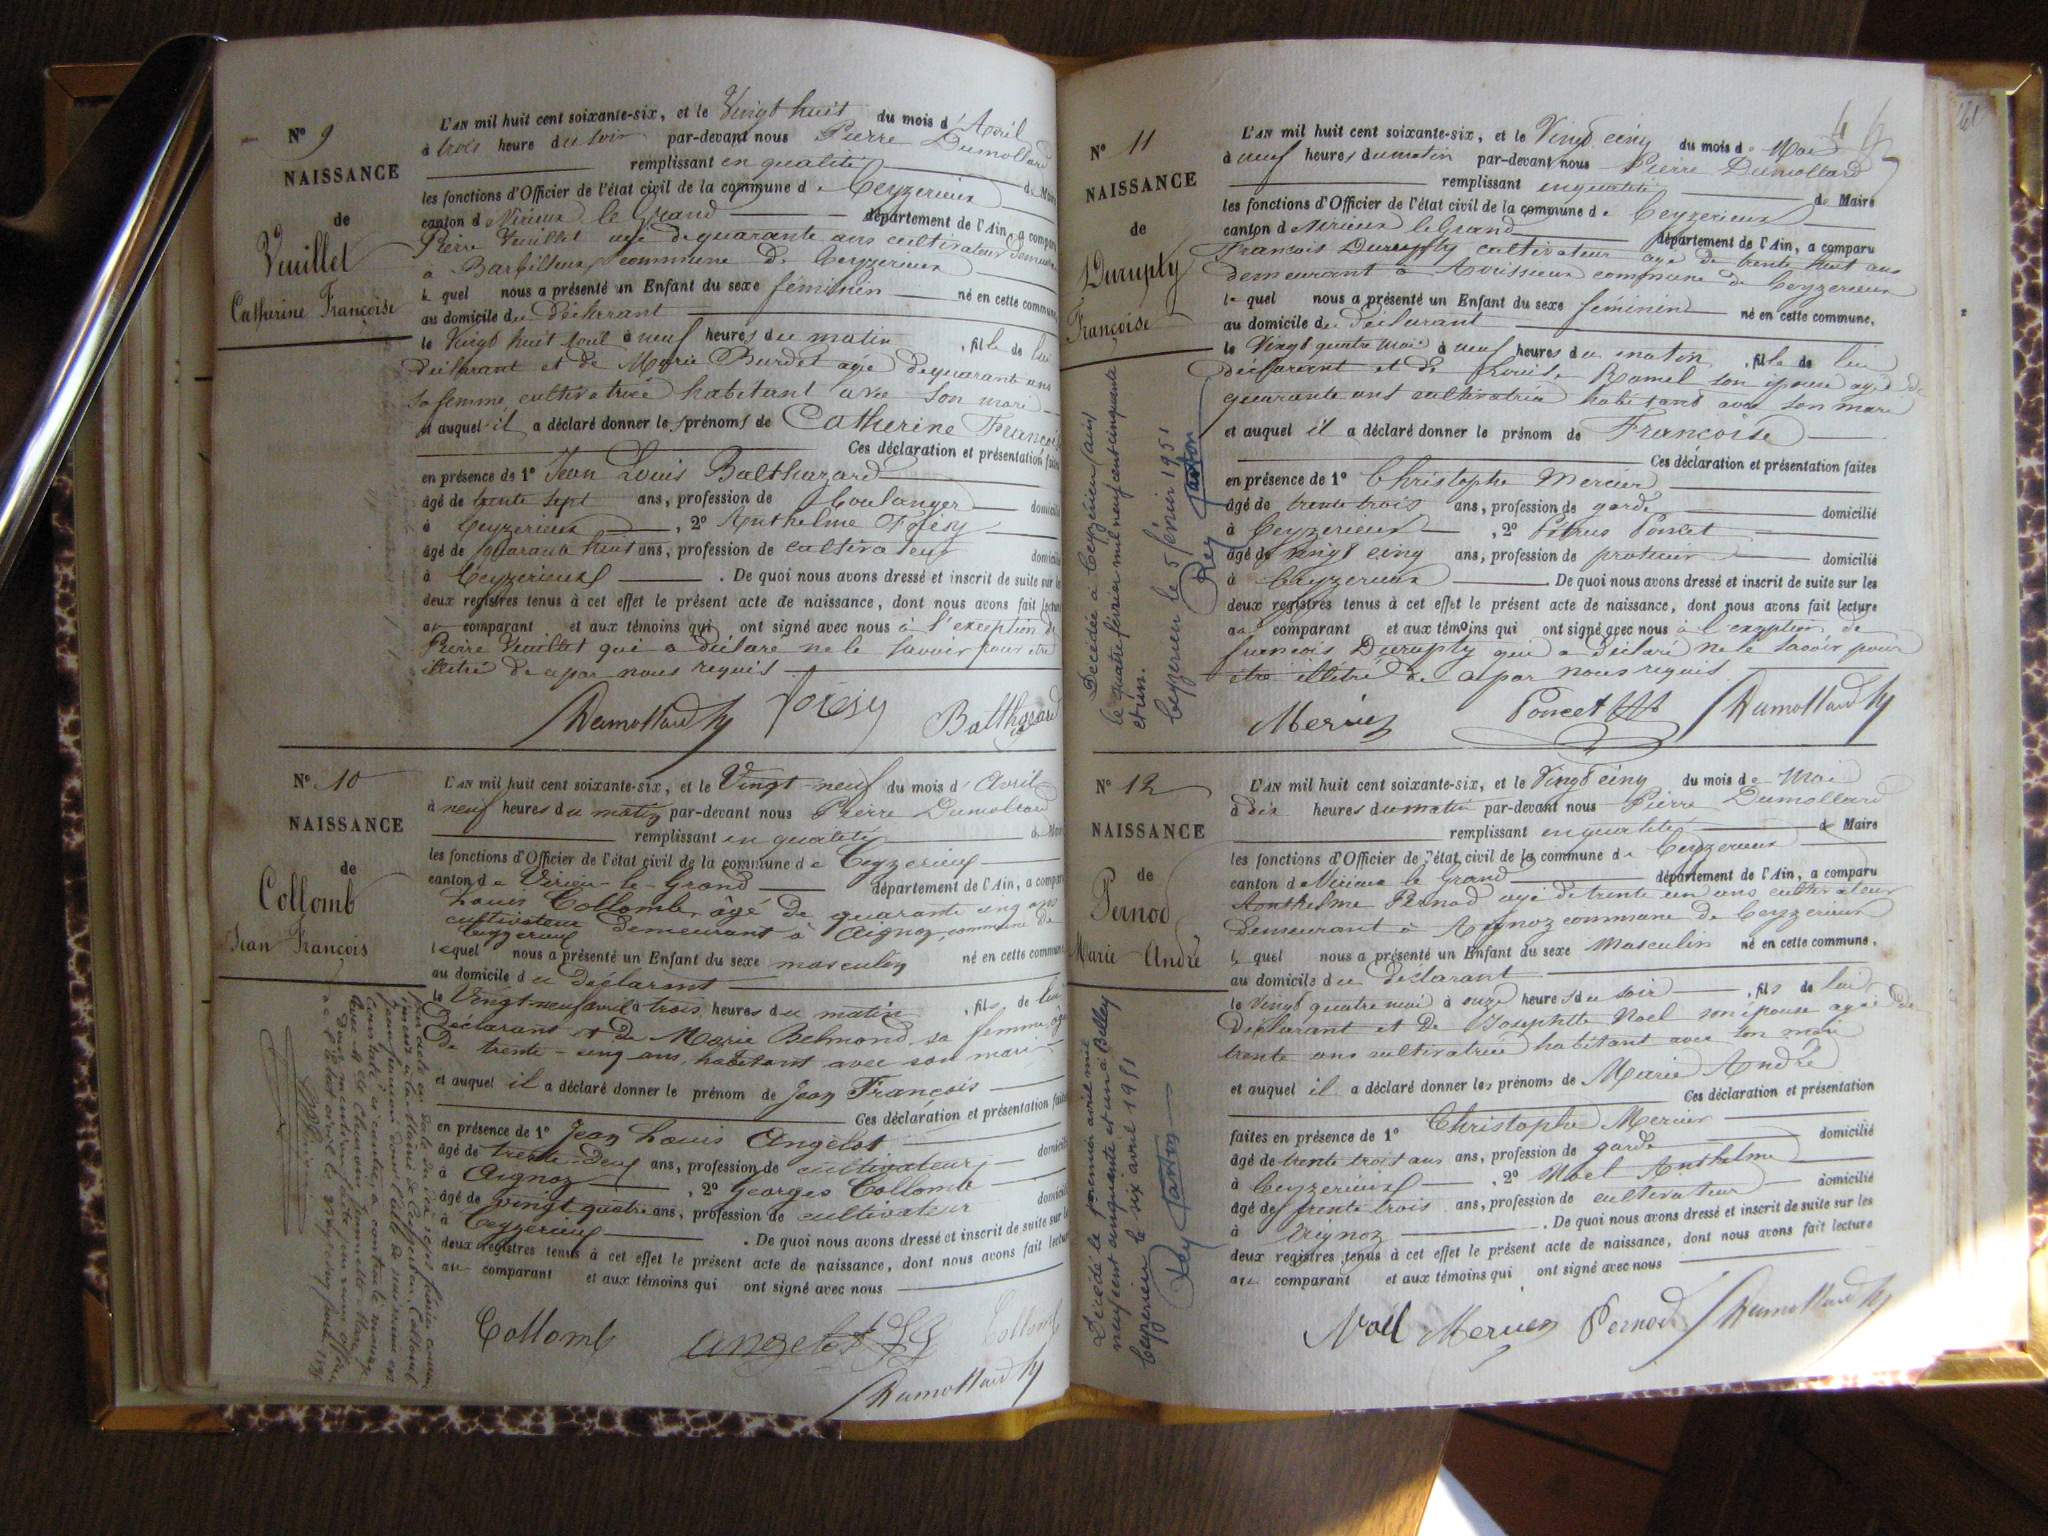 N° 9
NAISSANCE
de
Vuillet
Catherine Françoise
L'AN mil huit cent soixante-six, et le Vingt huit du mois d'Avril
à trois heure du soir par-devant nous Pierre Dumollard
remplissant en qualité de Maire
les fonctions d'Officier de l'état civil de la commune de Ceyzerieux
canton de Virieux le Grand département de l'Ain, a comparu
Pierre Vuillet agé de quarante ans cultivateur
à commune de Ceyzerieux
le quel nous a présenté un Enfant du sexe féminin né en cette commune,
au domicile du déclarant
le Vingt huit avril à neuf heures du matin, fille de lui
déclarant et de Marie Burdet agée de quarante ans
sa femme cultivatrice habitant avec son mari
et auquel il a déclaré donner les prénoms de Catherine Françoise
Ces déclaration et présentation faites
en présence de 1° Jean Louis Balthazard
âgé de trente sept ans, profession de Boulanger domicilié
à Ceyzerieux, 2° Anthelme
âgé de quarante huit ans, profession de cultivateur domicilié
à Ceyzerieux. De quoi nous avons dressé et inscrit de suite sur les
deux registres tenus à cet effet le présent acte de naissance, dont nous avons fait lecture
au comparant et aux témoins qui ont signé avec nous à l'exception de
Pierre Vuillet qui a déclaré ne le savoir pour être
illétré de ce par nous requis
Dumollard Balthazard
N° 10
NAISSANCE
de
Collomb
Jean François
L'AN mil huit cent soixante-six, et le Vingt-neuf du mois d'Avril
à neuf heures du matin par-devant nous Pierre Dumollard
remplissant en qualité de Maire
les fonctions d'Officier de l'état civil de la commune de Ceyzerieux
canton de Virieu-le-Grand département de l'Ain, a comparu
Louis Collomb, âgé de quarante cinq ans
cultivateur demeurant à Aignoz, commune de
Ceyzerieux
lequel nous a présenté un Enfant du sexe masculin né en cette commune
au domicile du déclarant
le Vingt-neuf avril à trois heures du matin, fils de lui
déclarant et de Marie Belmond sa femme, agée
de trente-cinq ans, habitant avec son mari
et auquel il a déclaré donner le prénom de Jean François
Ces déclaration et présentation faites
en présence de 1° Jean Louis Angelot
âgé de trente-deux ans, profession de cultivateur domicilié
à Aignoz, 2° Georges Collomb
âgé de vingt quatre ans, profession de cultivateur domicilié
à Ceyzerieux. De quoi nous avons dressé et inscrit de suite sur les
deux registres tenus à cet effet le présent acte de naissance, dont nous avons fait lecture
au comparant et aux témoins qui ont signé avec nous
Collomb Angelot Collomb
Dumollard
N° 11
NAISSANCE
de
Durupty
Francoise
Décédée à Ceyzérieu (ain)
le quatre février mil neuf cent cinquante
et un.
Ceyzerieu le 5 février 1951
Rey
L'AN mil huit cent soixante-six, et le Vingt cinq du mois de Mai
à neuf heures du matin par-devant nous Pierre Dumollard
remplissant en qualité de Maire
les fonctions d'Officier de l'état civil de la commune de Ceyzerieux
canton de Virieux le Grand département de l'Ain, a comparu
Francois Durupty cultivateur agé de trente huit ans
demeurant à Avrissieux commune de Ceyzerieux
le quel nous a présenté un Enfant du sexe féminin né en cette commune.
au domicile du déclarant
le Vingt quatre mai à neuf heures du matin, fille de lui
déclarant et de Louise Ramel son épouse agée de
quarante ans cultivatrice habitant avec son mari
et auquel il a déclaré donner le prénom de Francoise
Ces déclaration et présentation faites
en présence de 1° Christophe Mercier
âgé de trente trois ans, profession de garde domicilié
à Ceyzerieux, 2° Petrus Poncet
âgé de vingt cinq ans, profession de domicilié
à Ceyzerieux. De quoi nous avons dressé et inscrit de suite sur les
deux registres tenus à cet effet le présent acte de naissance, dont nous avons fait lecture
au comparant et aux témoins qui ont signé avec nous à l'exeption de
francois Durupty qui a déclaré ne le savoir pour
être illétré de ce par nous requis
Mercier Poncet Dumollard
N° 12
NAISSANCE
de
Pernod
Marie-André
Décédé le premier avril mil
neuf cent cinquante et un à Belley
Ceyzerieu le six avril 1951
Rey
L'AN mil huit cent soixante-six, et le Vingt cinq du mois de Mai
à dix heures du matin par-devant nous Pierre Dumollard
remplissant en qualité de Maire
les fonctions d'Officier de l'état civil de la commune de Ceyzerieux
canton de Virieux le Grand département de l'Ain, a comparu
Anthelme Pernod agé de trente un ans cultivateur
demeurant à Aignoz commune de Ceyzerieux
le quel nous a présenté un Enfant du sexe Masculin né en cette commune,
au domicile du déclarant
le Vingt quatre mai à onze heures du soir, fils de lui
déclarant et de Josephtte Noel son épouse agée de
trente ans cultivatrice habitant avec son mari
et auquel il a déclaré donner les prénoms de Marie André
Ces déclaration et présentation
faites en présence de 1° Christophe Mercier
âgé de trente trois ans ans, profession de garde domicilié
à Ceyzerieux, 2° Noel Anthelme
âgé de trente trois ans, profession de cultivateur domicilié
à Aignoz. De quoi nous avons dressé et inscrit de suite sur les
deux registres tenus à cet effet le présent acte de naissance, dont nous avons fait lecture
au comparant et aux témoins qui ont signé avec nous
Noël Mercier Pernod Dumollard